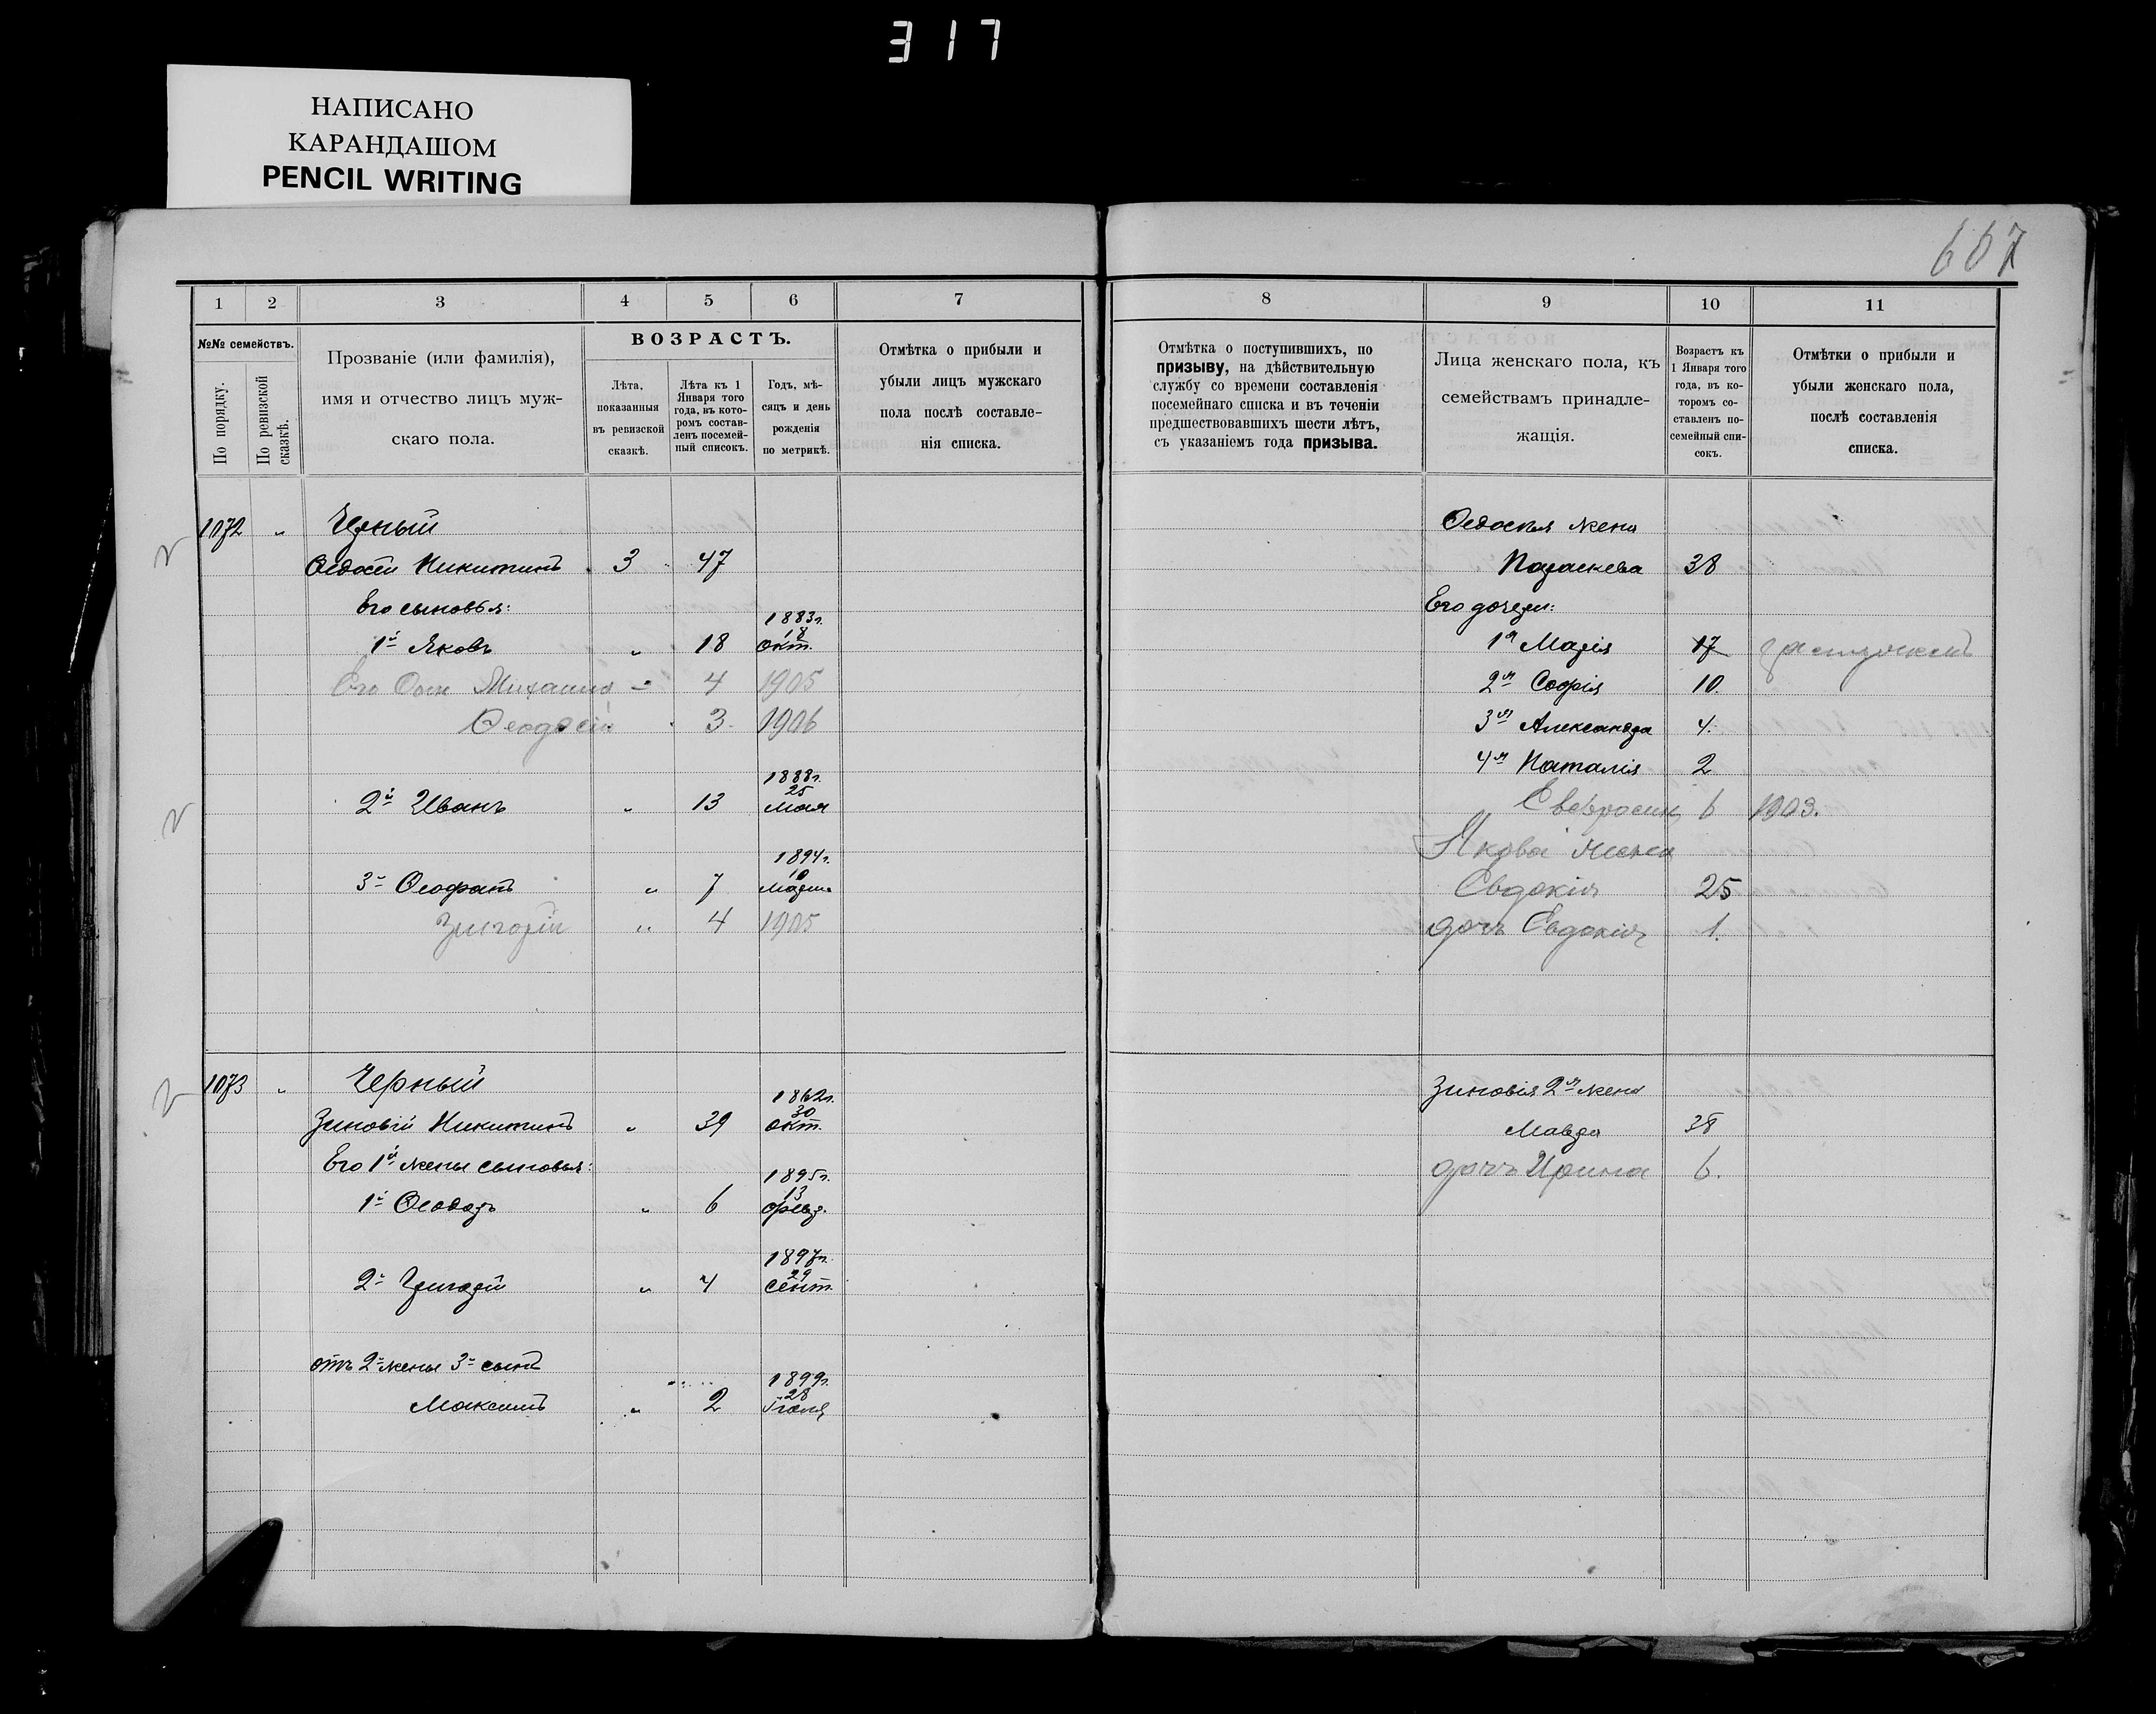 317
НАПИСАНО
КАРАНДАШОМ
PENCIL WRITING
607
1 2 3 4 5 6 7
8 9 10 11
№№ семействъ.
По порядку.
По ревизской сказкѣ.
Прозваніе (или фамилія),
имя и отчество лицъ муж-
скаго пола.
ВОЗРАСТЪ.
Лѣта,
показанныя
въ ревизской
сказкѣ.
Лѣта къ 1
Января того
года, въ кото-
ромъ состав-
ленъ посемей-
ный списокъ.
Годъ, мѣ-
сяцъ и день
рожденія
по метрикѣ.
Отмѣтка о прибыли и
убыли лицъ мужскаго
пола послѣ составле-
нія списка.
Отмѣтка о поступившихъ, по
призыву, на дѣйствительную
службу со времени составленія
посемейнаго списка и въ теченіи
предшествовавшихъ шести лѣтъ,
съ указаніемъ года призыва.
Лица женскаго пола, къ
семействамъ принадле-
жащія.
Возрастъ къ
1 Января того
года, въ ко-
торомъ со-
ставленъ по-
семейный спи-
сокъ.
Отмѣтки о прибыли и
убыли женскаго пола,
послѣ составленія
списка.
1072 " Черный
Ѳедосій Никитинъ 3 47
Его сыновья:
1й Яковъ " 18 1883г. 18 окт.
Его Сын Михаилъ - 4 1905
Ѳеодосій 3 1906
2й Иванъ " 13 1888г. 25 Мая
3й Ѳеофанъ " 7 1894г. 10 Марта
Григорій " 4 1905
Ѳедосія жена
Параскева 38
Его дочери:
1я Марія 17
2я Софія 10
3я Александра 4
4я Наталія 2
Евфросин 6 1903.
Якова жена
Евдокія 25
дочь Евдокія 1.
1073 " Черный
Зиновій Никитинъ " 39 1862г. 30 окт.
Его 1й жены сыновья:
1й Ѳеодоръ " 6 1895г. 13 февр.
2й Григорій " 4 1897г. 29 Сент.
отъ 2й жены 3й сынъ
Максимъ " 2 1899г. 28 Іюля
Зиновія 2я жена
Мавра 38
дочь Ирина 6.